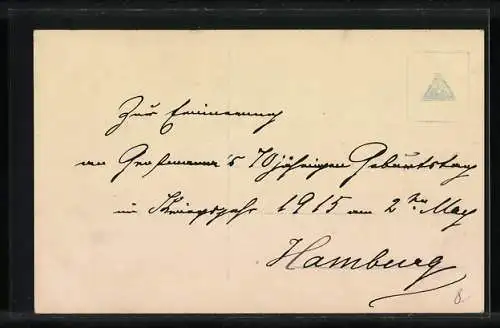 Zur Erinnerung
an Großmama's 70jährigen Geburtstag
im Kriegsjahr 1915 am 2ten May
Hamburg
8.